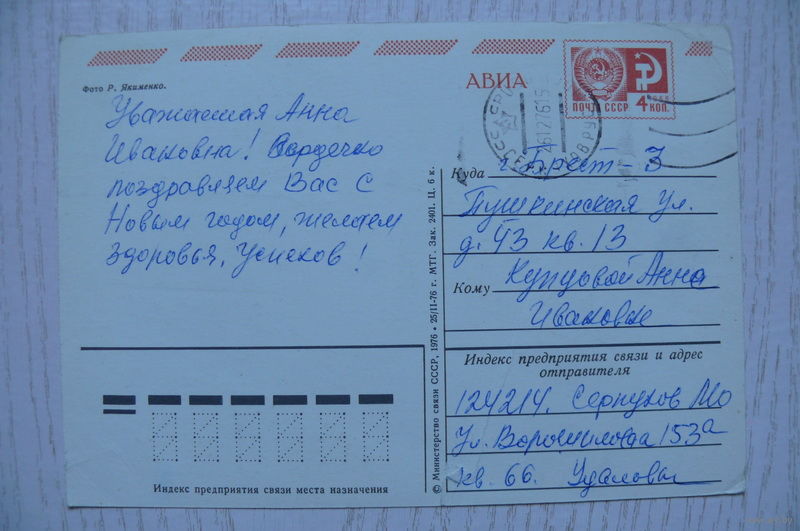 АВИА
ПОЧТА СССР 4 КОП.
Фото Р. Якименко.
Уважаемая Анна
Ивановна! Сердечно
поздравляем Вас с
Новым годом, желаем
здоровья, успехов!
Куда г. Брест-3
Пушкинская ул.
д. 43 кв. 13
Кому Купцовой Анне
Ивановне
Индекс предприятия связи и адрес
отправителя
124214. Серпухов МО
Ул. Ворошилова 153а
кв. 66. Удаловы
Индекс предприятия связи места назначения
© Министерство связи СССР, 1976 • 25/II-76 г. МТГ. Зак. 2401. Ц. 6 к.